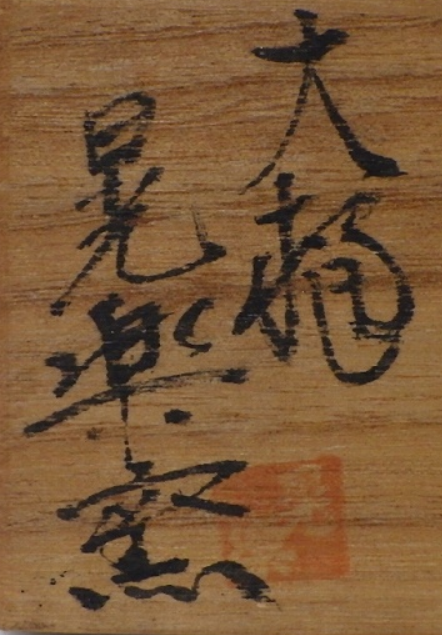 大樋
晃楽窯